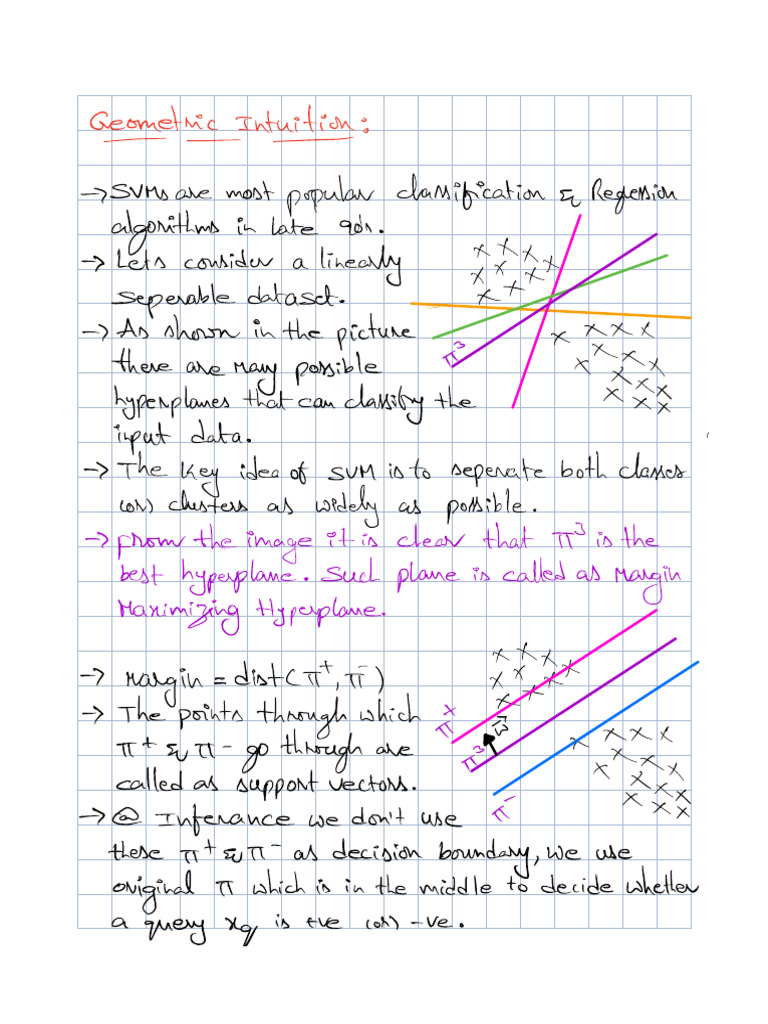 Geometric Intuition:
→ SVMs are most popular classification & Regression
algorithms in late 90's.
→ Lets consider a linearly
seperable dataset.
→ As shown in the picture
there are many possible
hyperplanes that can classify the
input data.
π³
→ The key idea of SVM is to seperate both classes
(or) clusters as widely as possible.
→ from the image it is clear that π³ is the
best hyperplane. Such plane is called as Margin
Maximizing Hyperplane.
→ margin = dist(π⁺, π⁻)
→ The points through which
π⁺ & π⁻ go through are
called as support vectors.
π⁺
π³
w⃗
π⁻
→ @ Inferance we don't use
these π⁺ & π⁻ as decision boundary, we use
original π which is in the middle to decide whether
a query xq is +ve (or) -ve.